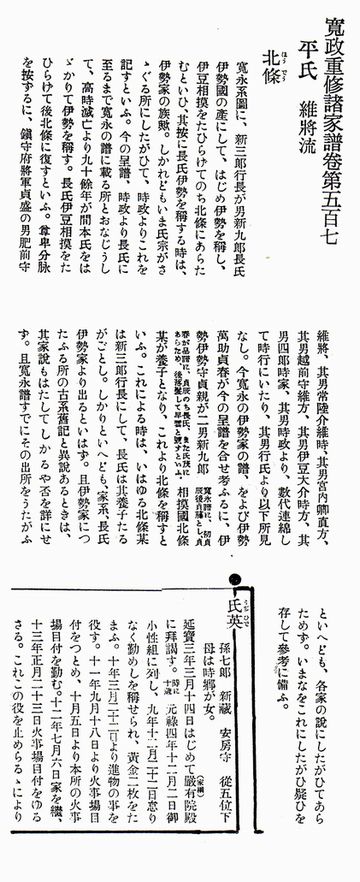 寛政重修諸家譜卷第五百七
平氏 維將流
北條
ほう でう
寛永系圖に、新三郎行長が男新九郎長氏
伊勢國の產にして、はじめ伊勢を稱し、
伊豆相摸をたひらけてのち北條にあらた
むといひ、其按に長氏伊勢を稱する時は、
伊勢家の族歟。しかれどもいま氏宗がさ
ゝぐる所にしたがひて、時政よりこれを
記すといふ。今の呈譜、時政より長氏に
至るまで寛永の譜に載る所とおなじうし
て、高時滅亡より九十餘年が間本氏をは
ゞかりて伊勢を稱す。長氏伊豆相摸をた
ひらけて後北條に復すといふ。尊卑分脉
を按ずるに、鎭守府將軍貞盛の男肥前守
維將、其男常陸介維時、其男宮内卿直方、
其男越前守維方、其男伊豆大介時方、其
男四郎時家、其男時政より、數代連綿し
て時行にいたり、其男行氏より以下所見
なし。今寛永の伊勢家の譜、をよび伊勢
萬助貞春が今の呈譜を合せ考ふるに、伊
勢伊勢守貞親が二男新九郎
相摸國北條
某が養子となり、これより北條を稱すと
いふ。これによる時は、いはゆる北條某
は新三郎行長にして、長氏は其養子たる
がごとし。しかりといへども、家系、長氏
伊勢家より出るといはず。且伊勢家につ
たふる所の古系舊記と異說あるときは、
其家說もはたしてしかるや否を詳にせ
ず。且寛永譜すでにその出所をうたがふ
といへども、各家の說にしたがひてあら
ためず。いまなをこれにしたがひ疑ひを
存して參考に備ふ。
氏英
うぢ ひで
孫七郎 新藏 安房守 從五位下
母は時鄕が女。
延寶三年三月十四日はじめて嚴有院殿(家綱)
に拜謁す。時に十歲 元祿四年十二月二日御
小性組に列し、九年十二月二十二日怠り
なく勤めしを稱せられ、黃金二枚をた
まふ。十年三月二十二日より進物の事を
役す。十一年九月十八日より火事場目
付をつとめ、十月五日より本所の火事
場目付を勤む。十二年七月六日家を繼、
十三年正月二十三日火事場目付をゆる
さる。これこの役を止めらるゝにより